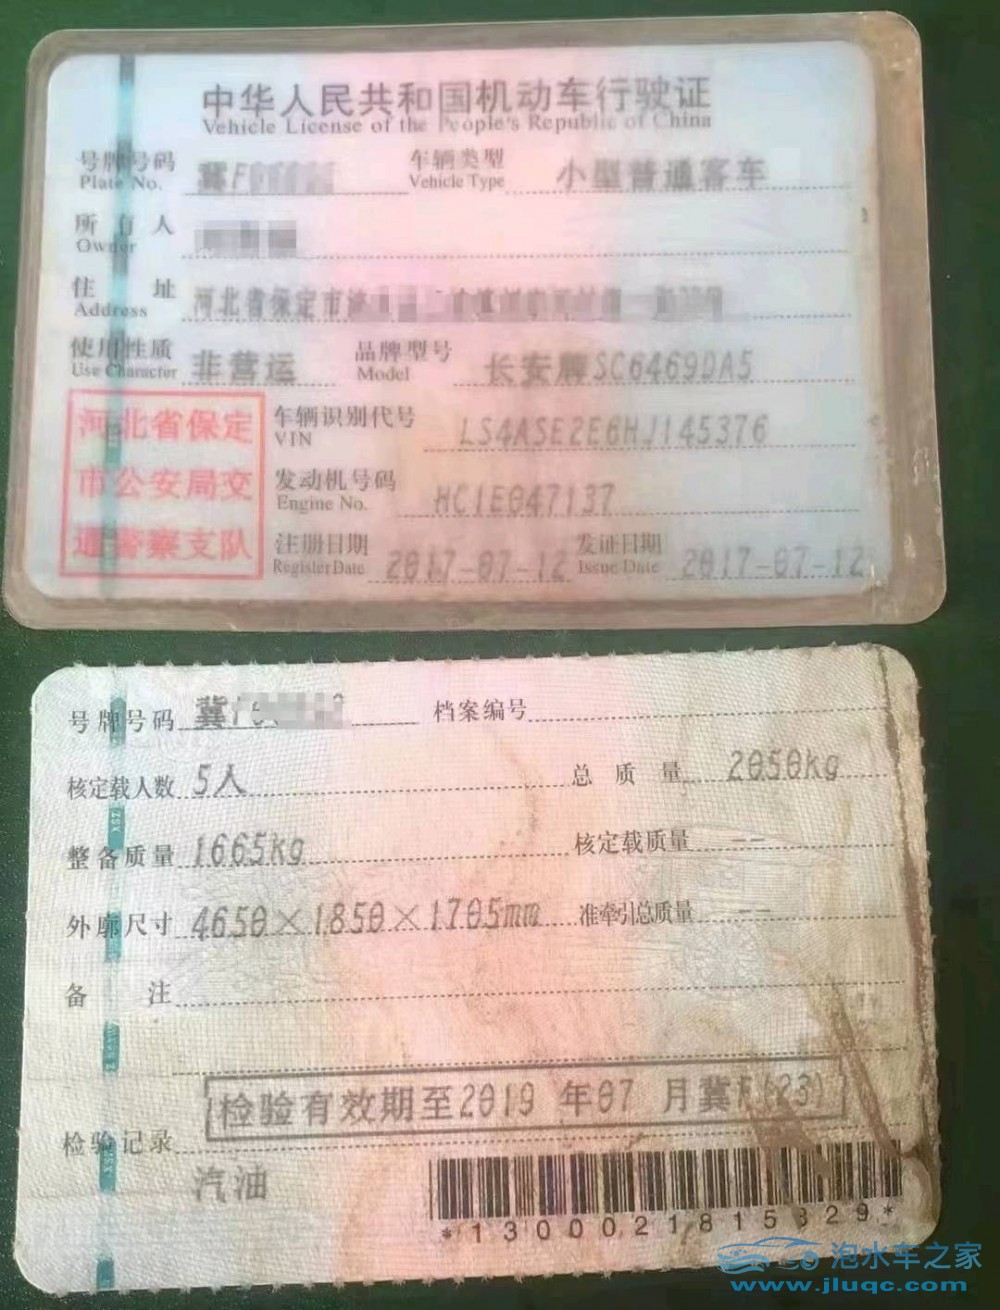 中华人民共和国机动车行驶证
Vehicle License of the People's Republic of China
号牌号码 冀F 车辆类型 小型普通客车
Plate No. Vehicle Type
所有人
Owner
住址 河北省保定市
Address
使用性质 非营运 品牌型号 长安牌SC6469DA5
Use Character Model
河北省保定 车辆识别代号 LS4ASE2E6HJ145376
VIN
市公安局交 发动机号码 HC1E047137
Engine No.
通警察支队 注册日期 2017-07-12 发证日期 2017-07-12
Register Date Issue Date
号牌号码 冀F 档案编号
核定载人数 5人 总质量 2050kg
整备质量 1665kg 核定载质量 --
外廓尺寸 4650×1850×1705mm 准牵引总质量 --
备注
检验有效期至2019年07月冀F(23)
检验记录
汽油
*1300021815829*
泡水车之家
www.jluqc.com